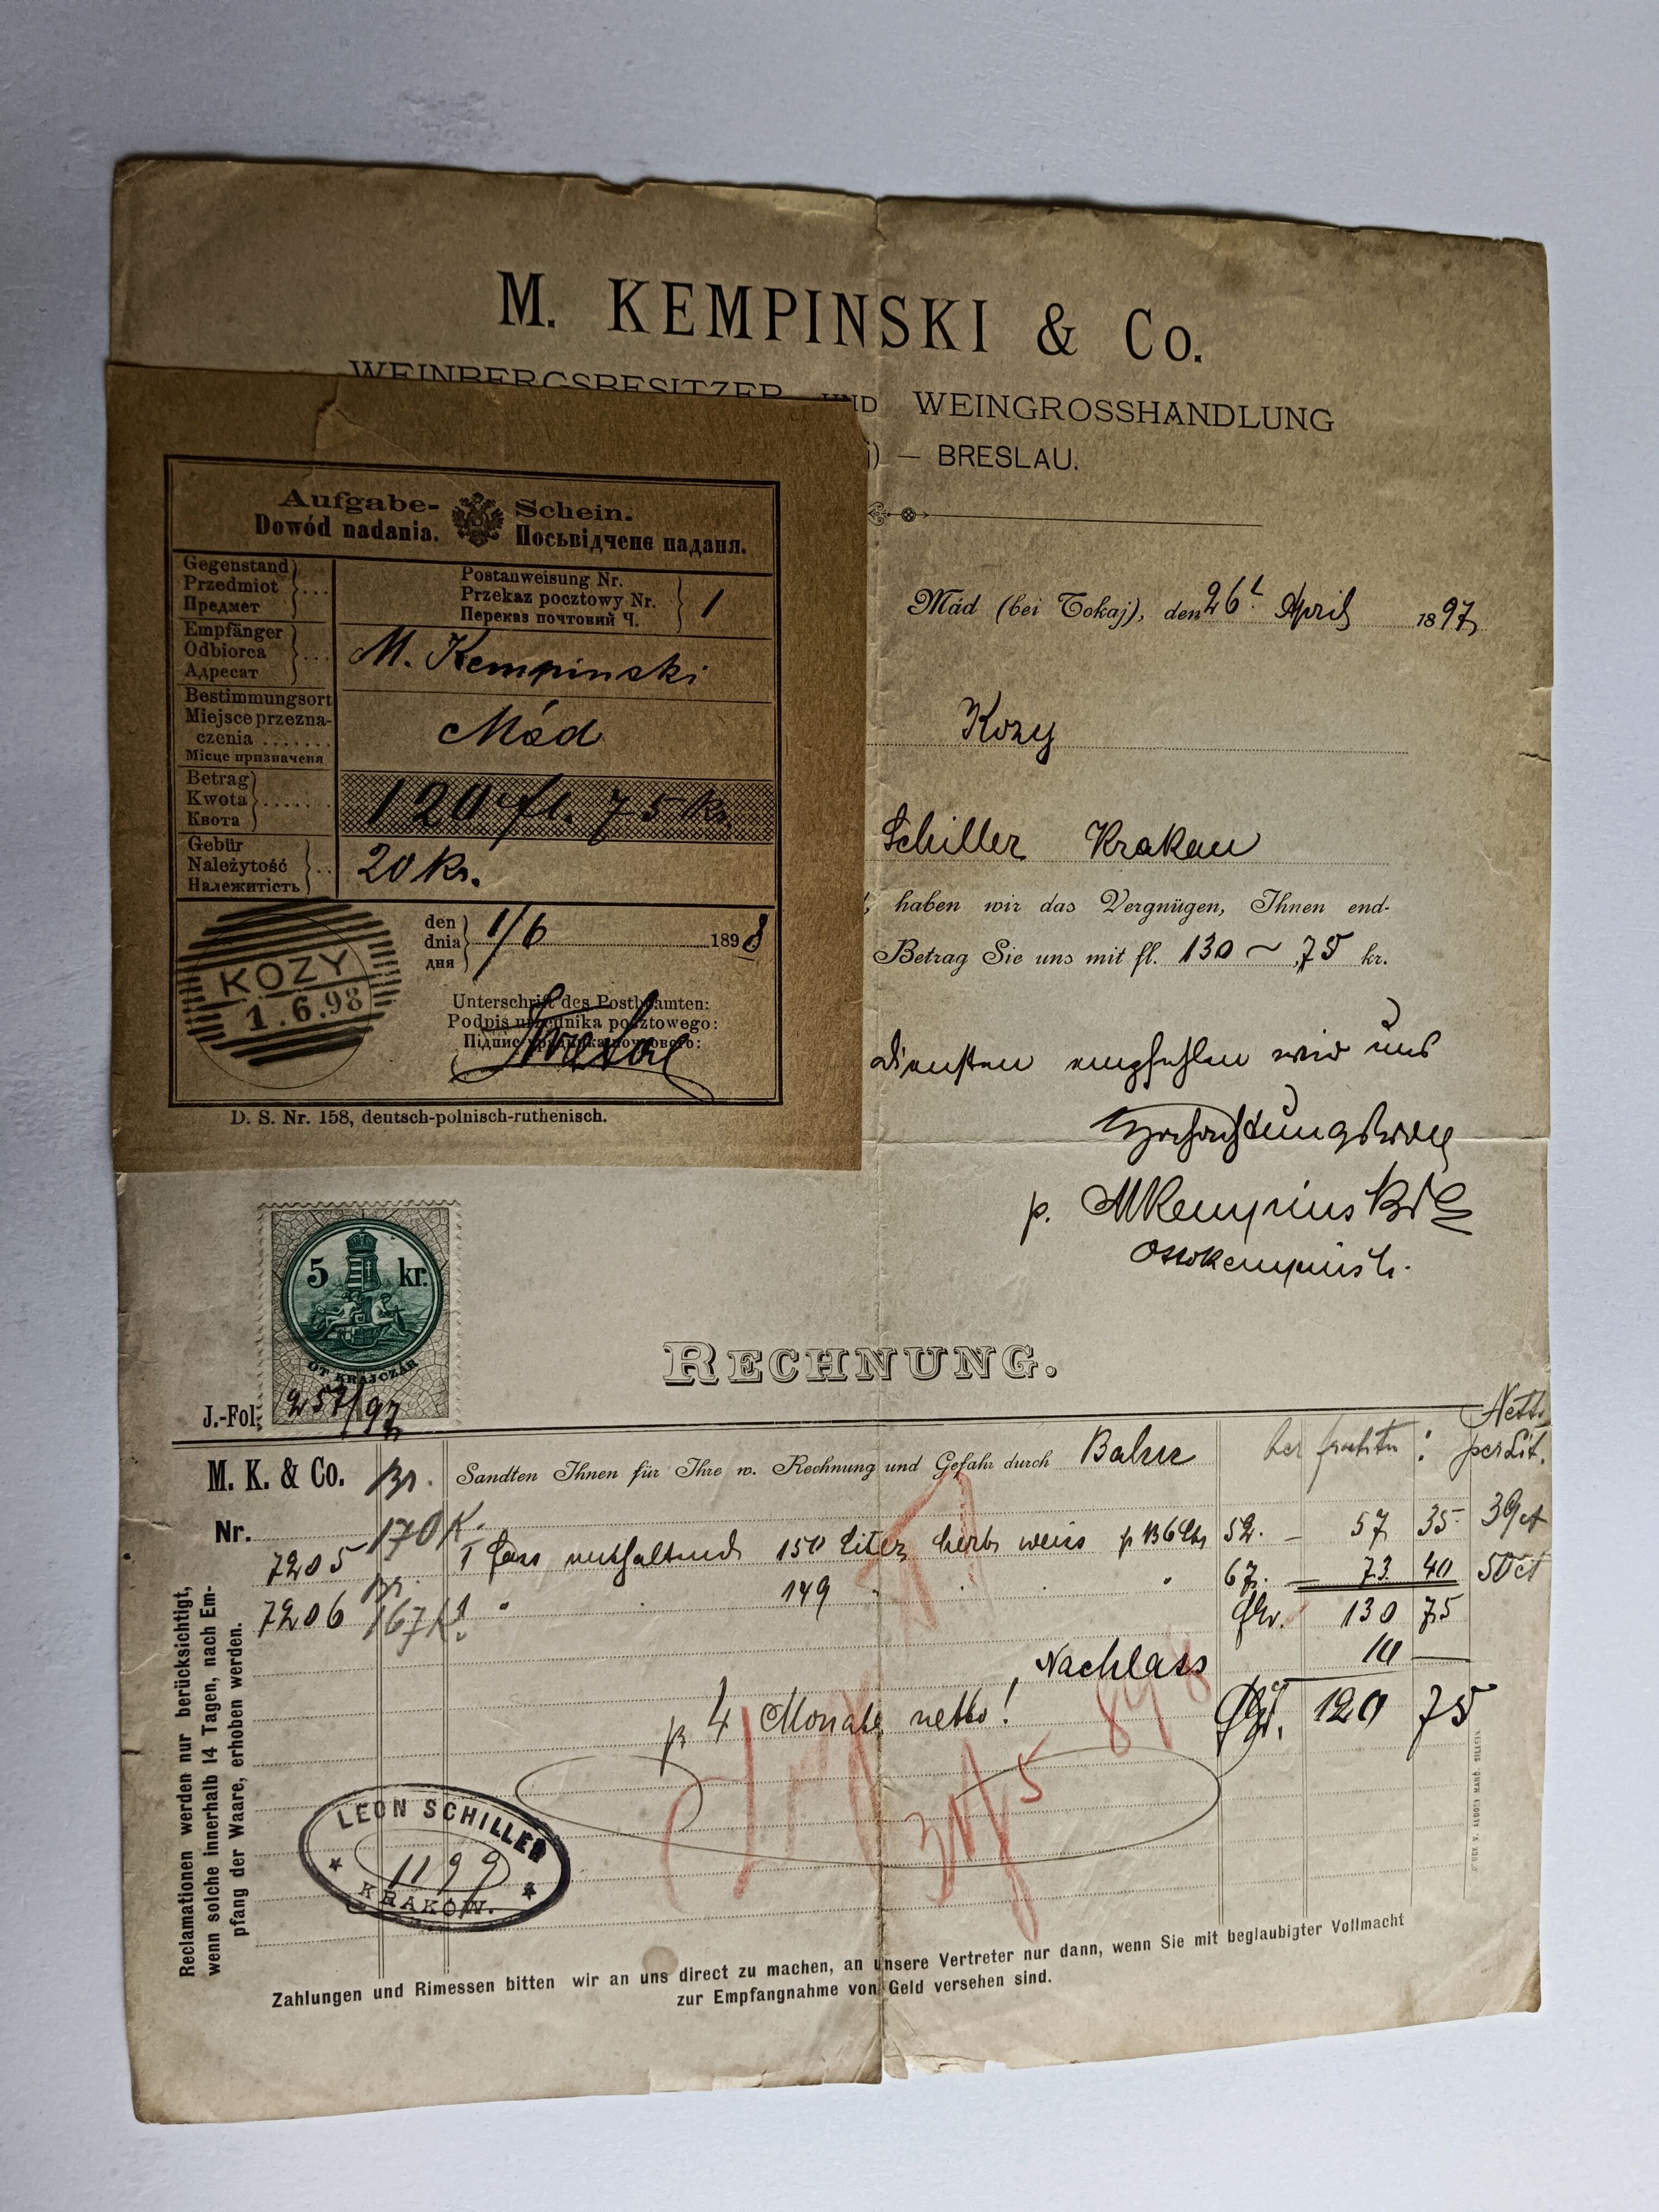 M. KEMPINSKI & Co.
WEINBERGSBESITZER UND WEINGROSSHANDLUNG
— BRESLAU.
Mád (bei Tokaj), den 26t April 1897
Kozy
Schiller Krakau
haben wir das Vergnügen, Ihnen end-
Betrag Sie uns mit fl. 130 ~ 75 kr.
Diensten empfehlen wir uns
Hochachtungsvoll
p. MKempinski
Aufgabe- Schein.
Dowód nadania. Посьвідченє наданя.
Gegenstand
Przedmiot
Предмет
Postanweisung Nr.
Przekaz pocztowy Nr. 1
Переказ почтовий Ч.
Empfänger
Odbiorca
Адресат
M. Kempinski
Bestimmungsort
Miejsce przezna-
czenia
Місце призначеня
Mád
Betrag
Kwota
Квота
120 fl. 75 kr.
Gebür
Należytość
Належитість
20 kr.
den
dnia 1/6 1898
дня
KOZY
1.6.98
Unterschrift des Postbeamten:
Podpis urzędnika pocztowego:
Підпис урядника почтового:
D. S. Nr. 158, deutsch-polnisch-ruthenisch.
5 kr.
ÖT KRAJCZÁR
RECHNUNG.
J.-Fol. 257/97
M. K. & Co. Br. Sandten Ihnen für Ihre w. Rechnung und Gefahr durch Bahn
Netto
per Lit.
Nr.
7205 170 K. 1 Fass enthaltend 150 Liter herb weiss p 136 52. — 57 35 39 ct
Br.
7206 167 K. 1 " 149 " 67. — 73 40 50 ct
130 75
Nachlass 10 —
p 4 Monate netto! 120 75
LEON SCHILLER
1199
KRAKÓW.
Reclamationen werden nur berücksichtigt,
wenn solche innerhalb 14 Tagen, nach Em-
pfang der Waare, erhoben werden.
Zahlungen und Rimessen bitten wir an uns direct zu machen, an unsere Vertreter nur dann, wenn Sie mit beglaubigter Vollmacht
zur Empfangnahme von Geld versehen sind.